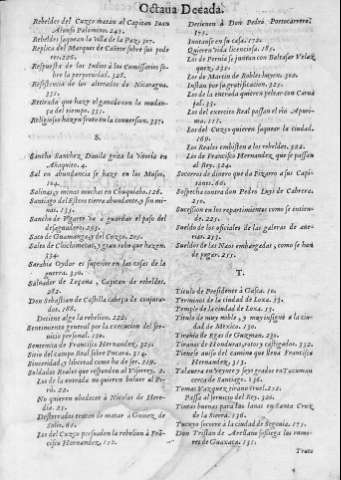 Octaua Decada.
Rebeldes del Cuzco matan al Capitan Iuan
Alonso Palomino. 243.
Rebeldes saquean la Villa de la Paz. 307.
Replica del Marques de Cañete sobre sus pode
res. 226.
Respuesta de los Indios à los Comissarios so-
bre la perpetuidad. 328.
Resistencia de los alterados de Nicaragua.
Retirada que haze el ganado con la mudan-
ça del tiempo.
Religiosos hazen fruto en la conuersion. 337.
S.
Sancho Sanchez Dauila
Añaquito. 4.
Sal en abundancia se haze en los Moxos,
104.
Salinas, y minas muchas en Chuquiabo. 126.
Santiago del Estero tierra abundante, y sin mi
nas. 135.
Sancho de Vgarte va à guardar el passo del
desaguadero. 295.
Saco de Guamanga, y del Cuzco. 205.
334.
guerra. 350.
Saluador de Leçana, Capitan de rebeldes.
282.
Don Sebastian de Castilla cabeça de conjura-
dos. 168.
Detiene algo la rebelion. 222.
Sentimento general por la execucion del ser-
uicio personal. 190.
Sentencia de Francisco Hernandez. 325.
Sitio del campo Real sobre Pucara. 314.
Sinceridad, y libertad como ha de ser.
Soldados Reales que respanden al Visorrey. 2.
Los de la entrada no quieren bolver al Pe-
rù. 22.
No quieren obedecer à Nicolas de Here-
dia. 23.
Desterrados tratan de matar à Gomez de
Solis. 61.
Los del Cuzco persuaden la rebelion à Frã-
cisco Hernandez. 152.
Detienen à Don Pedro Portocarrero.
173.
Quieren vida licenciosa. 185.
Los de Pernia se juntan con Baltasar Velaz
quez. 232.
Los de Martin de Robles huyen. 300.
Instan por la gratificacion. 325.
Los de la entrada quieren pelear con Carua
jal. 35.
Los del exercito Real passan el rio Apuri-
ma. 117.
Los del Cuzco quieren saquear la ciudad.
169.
Los Reales embisten a los rebeldes. 302.
Los de Francisco Hernandez, que se passan
al Rey. 324.
Socorros de dinero que da Pizarro a sus Capi-
tanes. 60.
Sospecha contra Don Pedro Luys de Cabrera.
230.
Sucession en los repartimientos como se entien-
de. 225.
Sueldo de los oficiales de las galeras de ante-
rias. 233.
Sueldos de las Naos embargadas, como se han
de pagar. 255.
T.
Titulo de Presidente à Gasca. 10.
Terminos de la ciudad de Loxa. 53.
Temple de la ciudad de Loxa. 53.
Titulo de muy noble, y muy insigne a la ciu-
dad de Mexico. 130.
Tirania de Egas de Guzman. 230.
Tiranos de Honduras, rotos y castigados. 332.
Tienese auiso del camino que lleua Francisco
Hernandez. 313.
Talauera en veynte y seys grados en Tucuman
cerca de Santiago. 136.
Tomas Vazquez tirano cruel. 212.
Passa al seruicio del Rey. 320.
Tierras buenas para las lanas en Santa Cruz
de la Sierra. 136.
Tucuyo socorre a la ciudad de Segouia. 173.
Don Tristan de Arellano sossiega los rumo-
res de Guaxaca. 131.
Trata